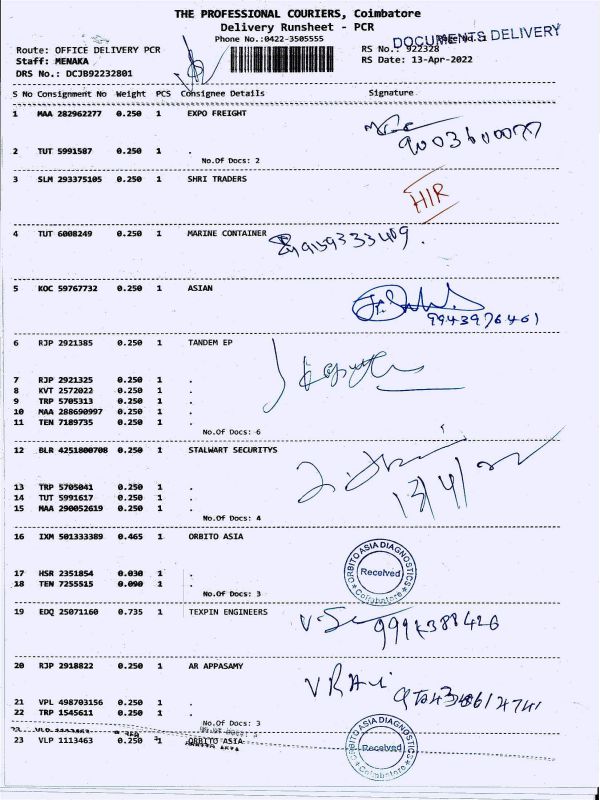 THE PROFESSIONAL COURIERS, Coimbatore
Delivery Runsheet - PCR
Phone No.:0422-3505555
DOCUMENTS DELIVERY
Route: OFFICE DELIVERY PCR
RS No.: 922328
Staff: MENAKA
RS Date: 13-Apr-2022
DRS No.: DCJB92232801
S No Consignment No Weight PCS Consignee Details Signature
1 MAA 282962277 0.250 1 EXPO FREIGHT
2 TUT 5991587 0.250 1 .
No.Of Docs: 2
3 SLM 293375105 0.250 1 SHRI TRADERS
HIR
4 TUT 6008249 0.250 1 MARINE CONTAINER
5 KOC 59767732 0.250 1 ASIAN
9943976461
6 RJP 2921385 0.250 1 TANDEM EP
7 RJP 2921325 0.250 1 .
8 KVT 2572022 0.250 1 .
9 TRP 5705313 0.250 1 .
10 MAA 288690997 0.250 1 .
11 TEN 7189735 0.250 1 .
No.Of Docs: 6
12 BLR 4251800708 0.250 1 STALWART SECURITYS
13/4/22
13 TRP 5705041 0.250 1 .
14 TUT 5991617 0.250 1 .
15 MAA 290052619 0.250 1 .
No.Of Docs: 4
16 IXM 501333389 0.465 1 ORBITO ASIA
ORBITO ASIA DIAGNOSTICS
Received
Coimbatore
17 HSR 2351854 0.030 1 .
18 TEN 7255515 0.090 1 .
No.Of Docs: 3
19 EDQ 25071160 0.735 1 TEXPIN ENGINEERS
20 RJP 2918822 0.250 1 AR APPASAMY
21 VPL 498703156 0.250 1 .
22 TRP 1545611 0.250 1 .
No.Of Docs: 3
23 VLP 1113463 0.250 1 ORBITO ASIA
ORBITO ASIA DIAGNOSTICS
Received
Coimbatore